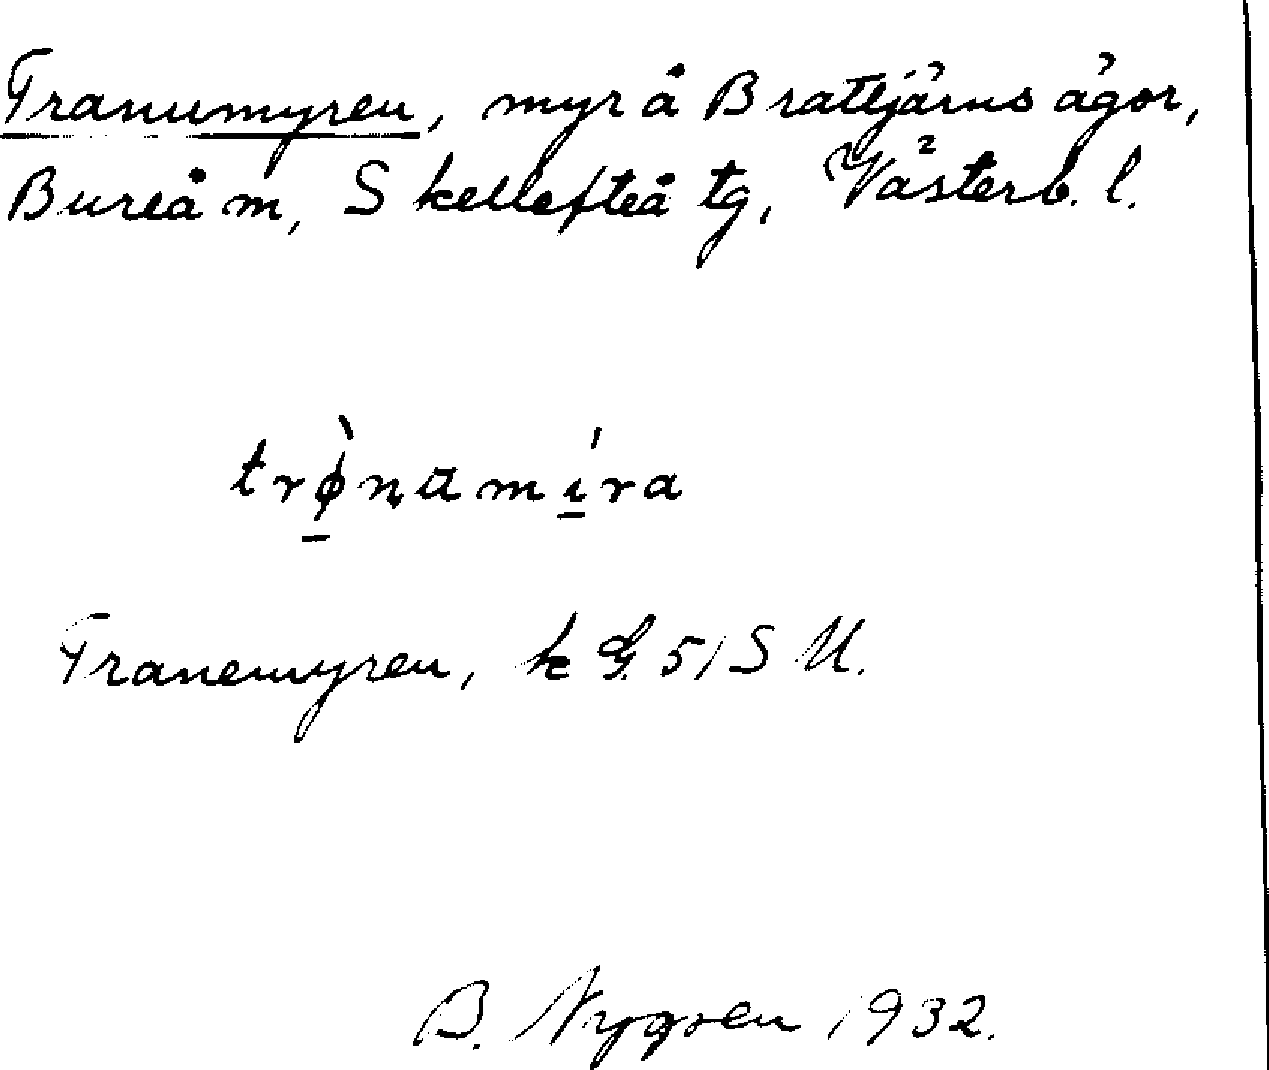 Tranumyren, myr å Brattjärns ägor,
Bureå m, Skellefteå tg, Västerb. l.
trø̱̀numı̱́ra
Tranemyren, k G. 51 S U.
B. Nygren 1932.